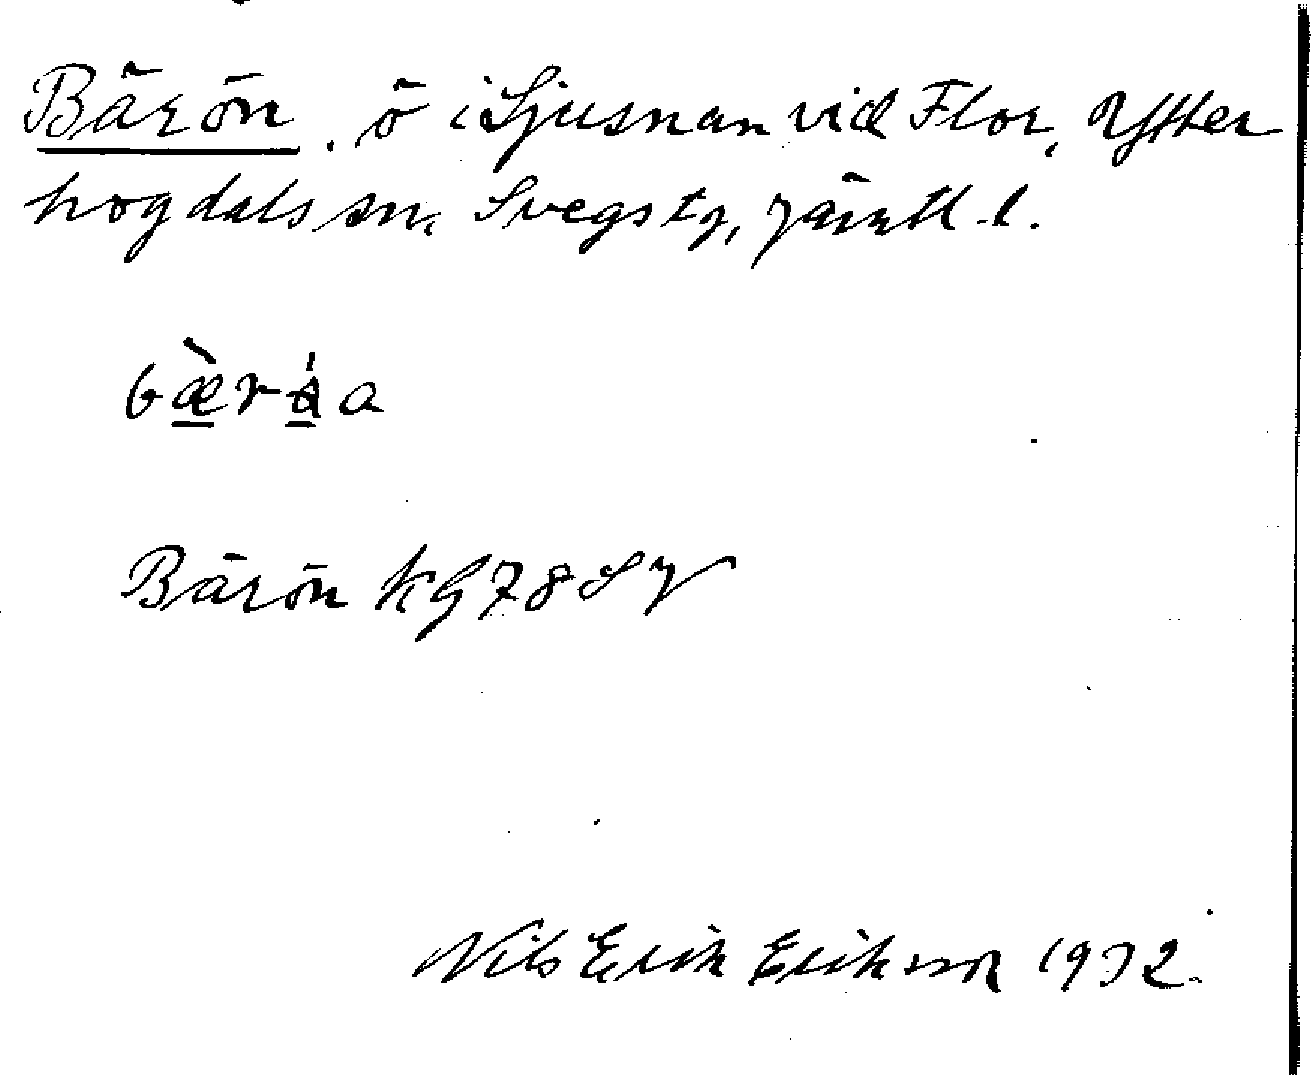 Bärön, ö i Ljusnan vid Flor, Ytter
hogdals sn, Svegs tg, Jämtl. l.
Bärön KG 78 SV
Nils Erik Erikson 1932.